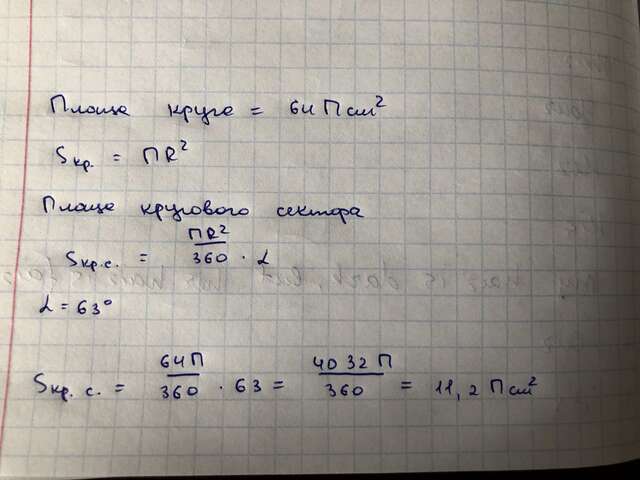 Площа круга = 64П см²
Sкр. = ПR²
Площа кругового сектора
Sкр.с. = ПR²/360 · α
α = 63°
Sкр.с. = 64П/360 · 63 = 4032П/360 = 11,2П см²